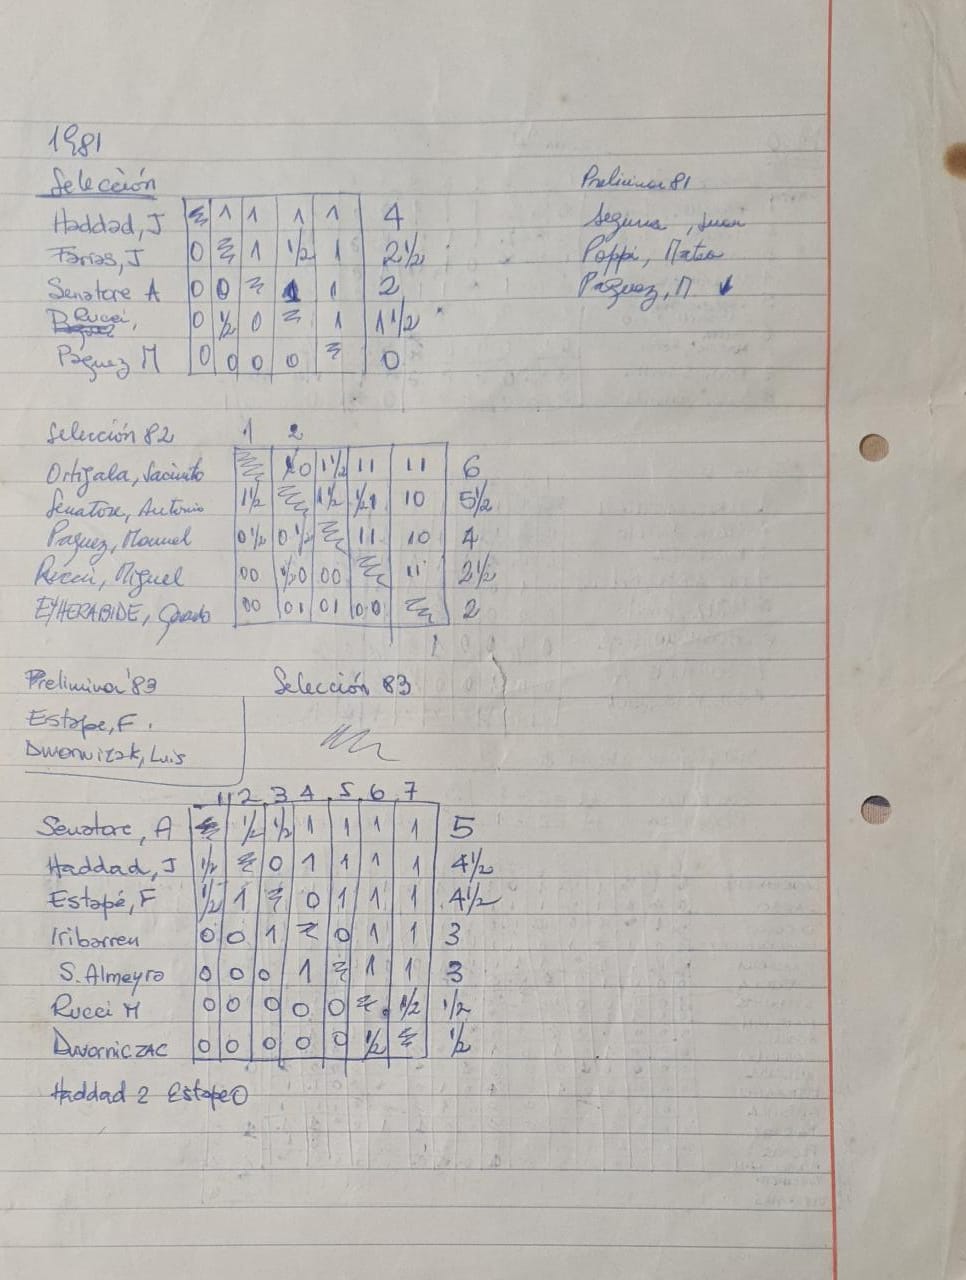 1981
Selección
Haddad, J 1 1 1 1 4
Farías, J 0 1 1/2 1 2 1/2
Senatore A 0 0 1 1 2
Rucci, 0 1/2 0 1 1 1/2
Paguez M 0 0 0 0 0
Preliminar 81
Segura, Juan
Poppi, Mateo
Paguez, M
Selección 82 1 2
Ortigala, Jacinto 0 1 1/2 11 11 6
Senatore, Antonio 1 1/2 1 1/2 1/2 1 10 5 1/2
Paguez, Manuel 0 1/2 0 1/2 11 10 4
Rucci, Miguel 00 1/2 0 00 11 2 1/2
EYHERABIDE, 00 01 01 00 2
Preliminar '83
Estape, F.
Dwornizak, Luis
Selección 83
1 2 3 4 5 6 7
Senatore, A 1/2 1/2 1 1 1 1 5
Haddad, J 1/2 0 1 1 1 1 4 1/2
Estapé, F 1/2 1 0 1 1 1 4 1/2
Iribarren 0 0 1 0 1 1 3
S. Almeyra 0 0 0 1 1 1 3
Rucci M 0 0 0 0 0 1/2 1/2
DWORNICZAC 0 0 0 0 0 1/2 1/2
Haddad 2 Estape 0